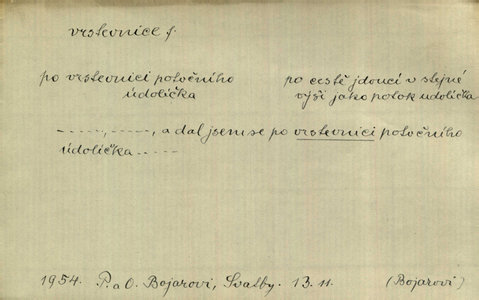 vrstevnice f.
po vrstevnici potočního údolíčka
po cestě jdoucí v stejné výši jako potok údolíčka
-----, -----, a dal jsem se po vrstevnici potočního
údolíčka -----
1954. P. a O. Bojarovi, Svatby. 13. 11. (Bojarovi)